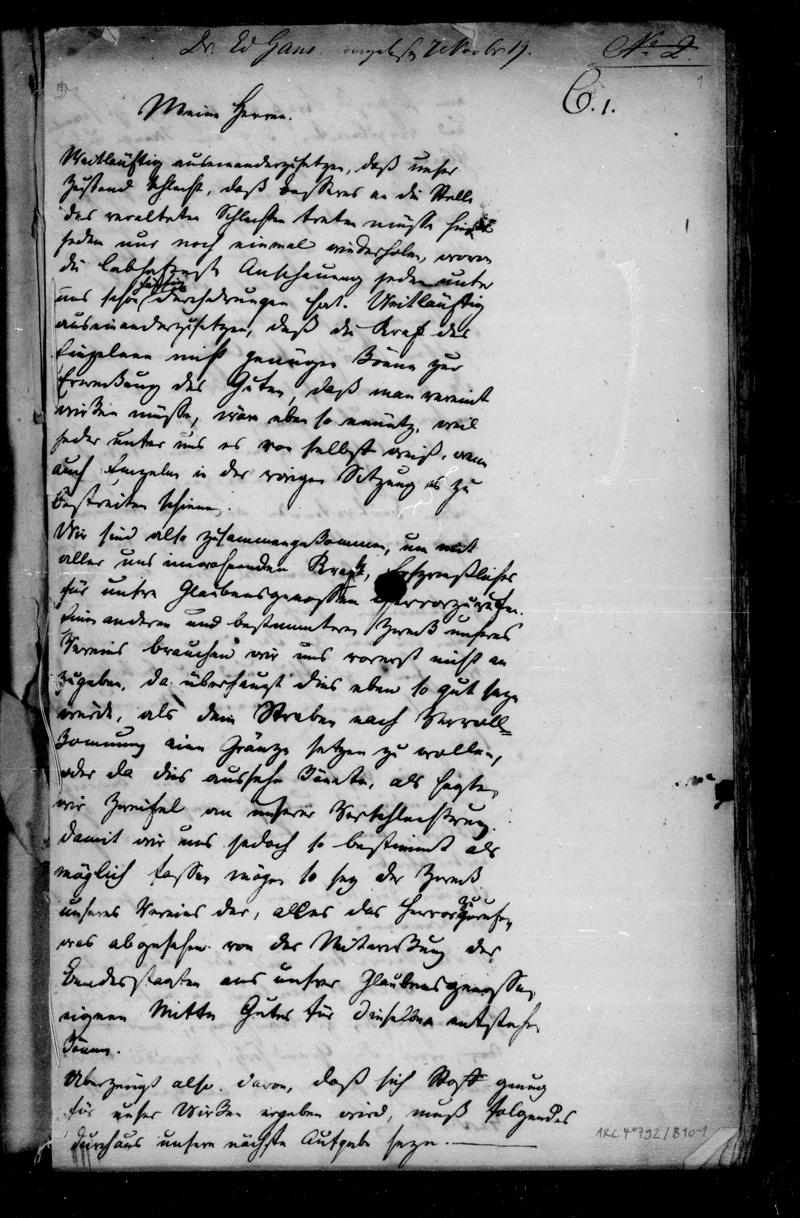 Dr. Ed Gans 7 Novbr 19.
No 2.
C. 1.
1
Meine Herren.
Weitläuftig auseinanderzusetzen, daß unser
Zustand schlecht, daß besseres an die Stelle
des veralteten Schlechten treten müsse hieße
jedem nur noch einmal wiederholen, wovon
die lebhafteste Anschauung jeden unter
uns schon durchdrungen hat. Weitläuftig
auseinanderzusetzen, daß die Kraft des
Einzelnen nicht genügen könne zur
Erweckung des Guten, daß man vereint
wirken müsse, wäre eben so unnütz, weil
jeder unter uns es von selbst weiß, wenn
auch Einzelne in der vorigen Sitzung es zu
bestreiten schienen.
Wir sind also zusammengekommen, um mit
aller uns inwohnenden Kraft, Ersprießliches
für unsre Glaubensgenossen hervorzurufen.
Einen anderen und bestimmteren Zweck unseres
Vereins brauchen wir uns vorerst nicht an
zugeben, da überhaupt dies eben so gut seyn
würde, als dem Streben nach Vervoll=
kommnung eine Gränze setzen zu wollen,
oder da dies aussehn könnte, als hegten
wir Zweifel an unserer Verschlechterung.
Damit wir uns jedoch so bestimmt als
möglich fassen mögen so sey der Zweck
unseres Vereins der, alles das hervorzurufen,
was abgesehen von der Mitwirkung der
Bundesstaaten aus unsrer Glaubensgenossen
eigenen Mitte Gutes für dieselben entstehn
könne.
Überzeugt also davon, daß sich Stoff genug
für unser Wirken ergeben wird, muß folgendes
durchaus unsere nächste Aufgabe seyn.
ARC 4°792/B10-1